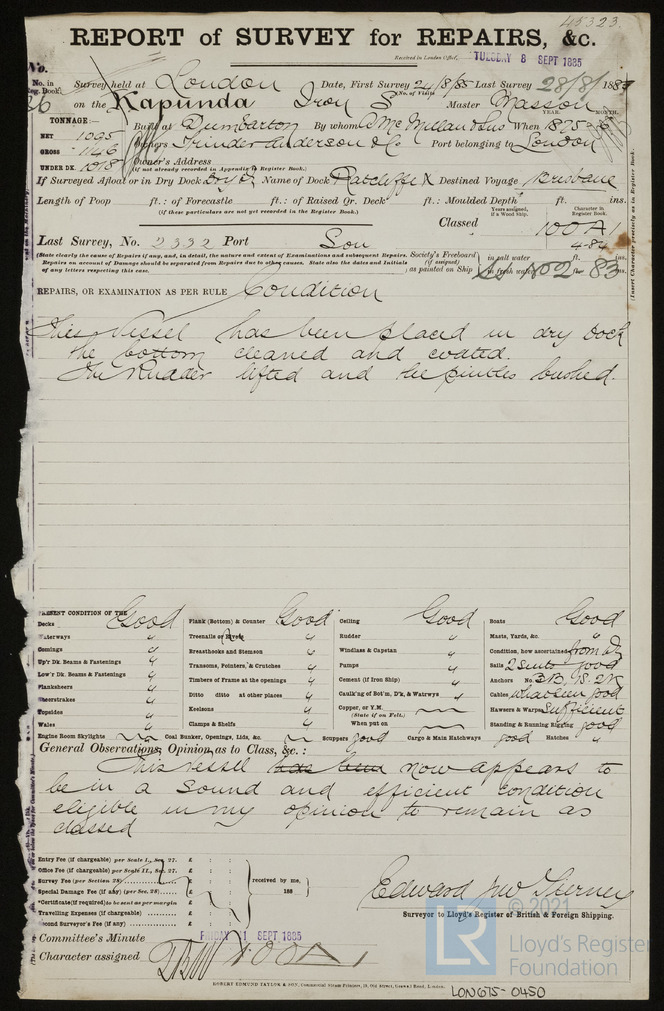 45323
REPORT of SURVEY for REPAIRS, &c.
Received in London Office, TUESDAY 8 SEPT 1885
No.
No. in Survey held at London Date, First Survey 24/8/85 Last Survey 28/8/1885
Reg. Book. (No. of Visits
26 on the Kapunda Iron S Master Masson
TONNAGE:— YEAR. MONTH.
NET 1095 Built at Dumbarton By whom A McMillan & Sns When 1875
GROSS 1146 Owners Trinder Anderson & Co Port belonging to London
UNDER DK. 1018 Owner's Address
(if not already recorded in Appendix to Register Book.)
If Surveyed Afloat or in Dry Dock Dry D. Name of Dock Ratcliffe X Destined Voyage Brisbane
Length of Poop ft.: of Forecastle ft.: of Raised Qr. Deck ft.: Moulded Depth ft. ins.
(if these particulars are not yet recorded in the Register Book.)
Years assigned, if a Wood Ship. Character in Register Book.
Classed 100A1
4-84
Last Survey, No. 2332 Port Lon
(State clearly the cause of Repairs if any, and, in detail, the nature and extent of Examinations and subsequent Repairs.
Repairs on account of Damage should be separated from Repairs due to other causes. State also the dates and Initials
of any letters respecting this case.
Society's Freeboard (if assigned) as painted on Ship in salt water ft. ins.
in fresh water ft. ins.
No 2 - 83
(Insert Character precisely as in Register Book.
REPAIRS, OR EXAMINATION AS PER RULE Condition
This Vessel has been placed in dry dock
the bottom cleaned and coated.
The Rudder lifted and the pintles bushed.
PRESENT CONDITION OF THE
Decks Good Plank (Bottom) & Counter Good Ceiling Good Boats Good
Waterways " Treenails or Rivets " Rudder " Masts, Yards, &c. "
Comings " Breasthooks and Stemson " Windlass & Capstan " Condition, how ascertained from dk
Up'r Dk. Beams & Fastenings " Transoms, Pointers, & Crutches " Pumps " Sails 2 suits good
Low'r Dk. Beams & Fastenings " Timbers of Frame at the openings " Cement (if Iron Ship) " Anchors No. 3B, 1S. 2K
Planksheers " Ditto ditto at other places " Caulk'ng of Bot'm, D'k, & Watrwys " Cables what seen good
Sheerstrakes " Keelsons " Copper, or Y.M. Hawsers & Warps Sufficient
Topsides " Clamps & Shelfs " (State if on Felt.) Standing & Running Rigging good
Wales " When put on
Engine Room Skylights Coal Bunker, Openings, Lids, &c. Scuppers good Cargo & Main Hatchways good Hatches "
General Observations, Opinion as to Class, &c.:
This vessel has been now appears to
be in a sound and efficient condition
eligible in my opinion to remain as
classed
Entry Fee (if chargeable) per Scale I., Sec. 27. £ : :
Office Fee (if chargeable) per Scale II., Sec. 27. £ : :
Survey Fee (per Section 28) £ : :
Special Damage Fee (if any) (per Sec. 28) £ : :
*Certificate (if required) to be sent as per margin £ : :
Travelling Expenses (if chargeable) £ : :
Second Surveyor's Fee (if any) £ : :
received by me,
188
Edward Jno Tierney
Surveyor to Lloyd's Register of British & Foreign Shipping.
Committee's Minute FRIDAY 11 SEPT 1885
Character assigned 100A1
ROBERT EDMUND TAYLOR & SON, Commercial Steam Printers, 19, Old Street, Goswell Road, London.
LON675-0450
© 2021
LR
Lloyd's Register
Foundation